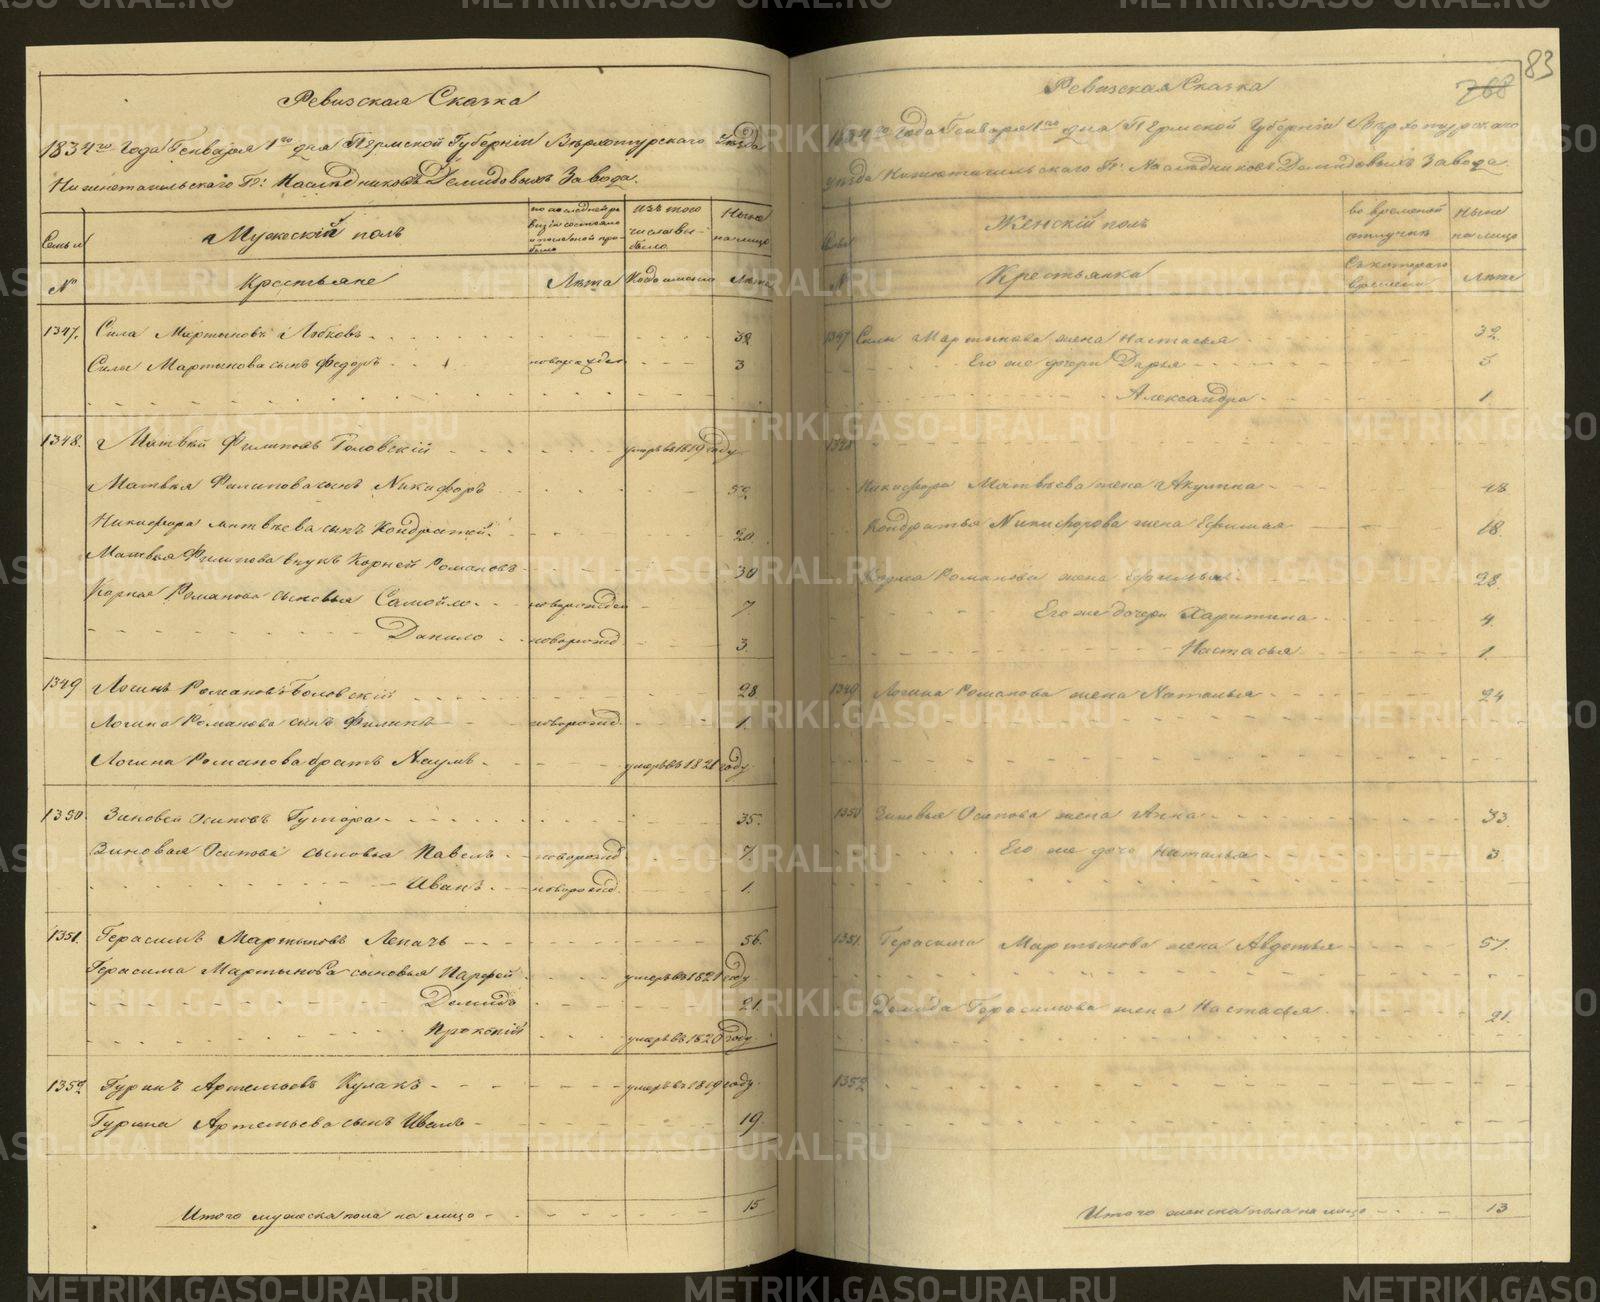 Ревизская Сказка
1834го Года Генваря 1го дня Пермской Губернии Верхотурскаго Уезда
Нижнотагильскаго Гг: Наследниковъ Демидовыхъ Завода.
Семьи
Мужескiй полъ
по последней ревизiи состояло и после оной прибыло
изъ того числа выбыло
Ныне на лицо
№
Крестьяне
Лета
Когда именно
Лета
1347. Сила Мартыновъ 32
Силы Мартынова сынъ Федоръ новорожден 3
1348. Матвей Филиповъ Головскiй умеръ въ 1819 году
Матвея Филипова сынъ Никифоръ 52
Никифора Матвеева сынъ Кондратей 20.
Матвея Филипова внукъ Корней Романовъ 30
Корнея Романова сыновья Самойло новорожден 7.
Данило новорожд 3.
1349 Логинъ Романовъ Головскiй 28
Логина Романова сынъ Филипъ новорожд. 1.
Логина Романова братъ Наумъ умеръ въ 1821 году
1350. Зиновей Осиповъ Гутара 35.
Зиновея Осипова сыновья Павелъ новорожд 7
Иванъ новорожд. 1.
1351. Герасимъ Мартыновъ Лепачь 56.
Герасима Мартынова сыновья Парфей умеръ въ 1821 году
Демидъ 21.
Прокопiй умеръ въ 1820 году
1352 Гуринъ Артемьевъ Кулакъ умеръ въ 1819 году.
Гурина Артемьева сынъ Иванъ 19
Итого мужеска пола на лицо 15
83
768
Ревизская Сказка
1834го Года Генваря 1го дня Пермской Губернiи Верхотурскаго
уезда Нижнотагильскаго Гг: Наследниковъ Демидовыхъ Завода
Семьи
Женскiй полъ
во временной отлучке
Ныне на лицо
№
Крестьянка
Съ котораго времени
Лета
1347 Силы Мартынова жена Настасья 32
Его же дочери Дарья 5
Александра 1
1348
Никифора Матвеева жена Акулина 48
Кондратья Никифорова жена Ефимья 18.
Корнея Романова жена 28
Его же дочери Харитина 4
Настасья 1.
1349 Логина Романова жена Наталья 24
1350 Зиновья Осипова жена Анна 33.
Его же дочь Наталья 3
1351. Герасима Мартынова жена Авдотья 57.
Демида Герасимова жена Настасья 21.
1352
Итого женска пола на лицо 13